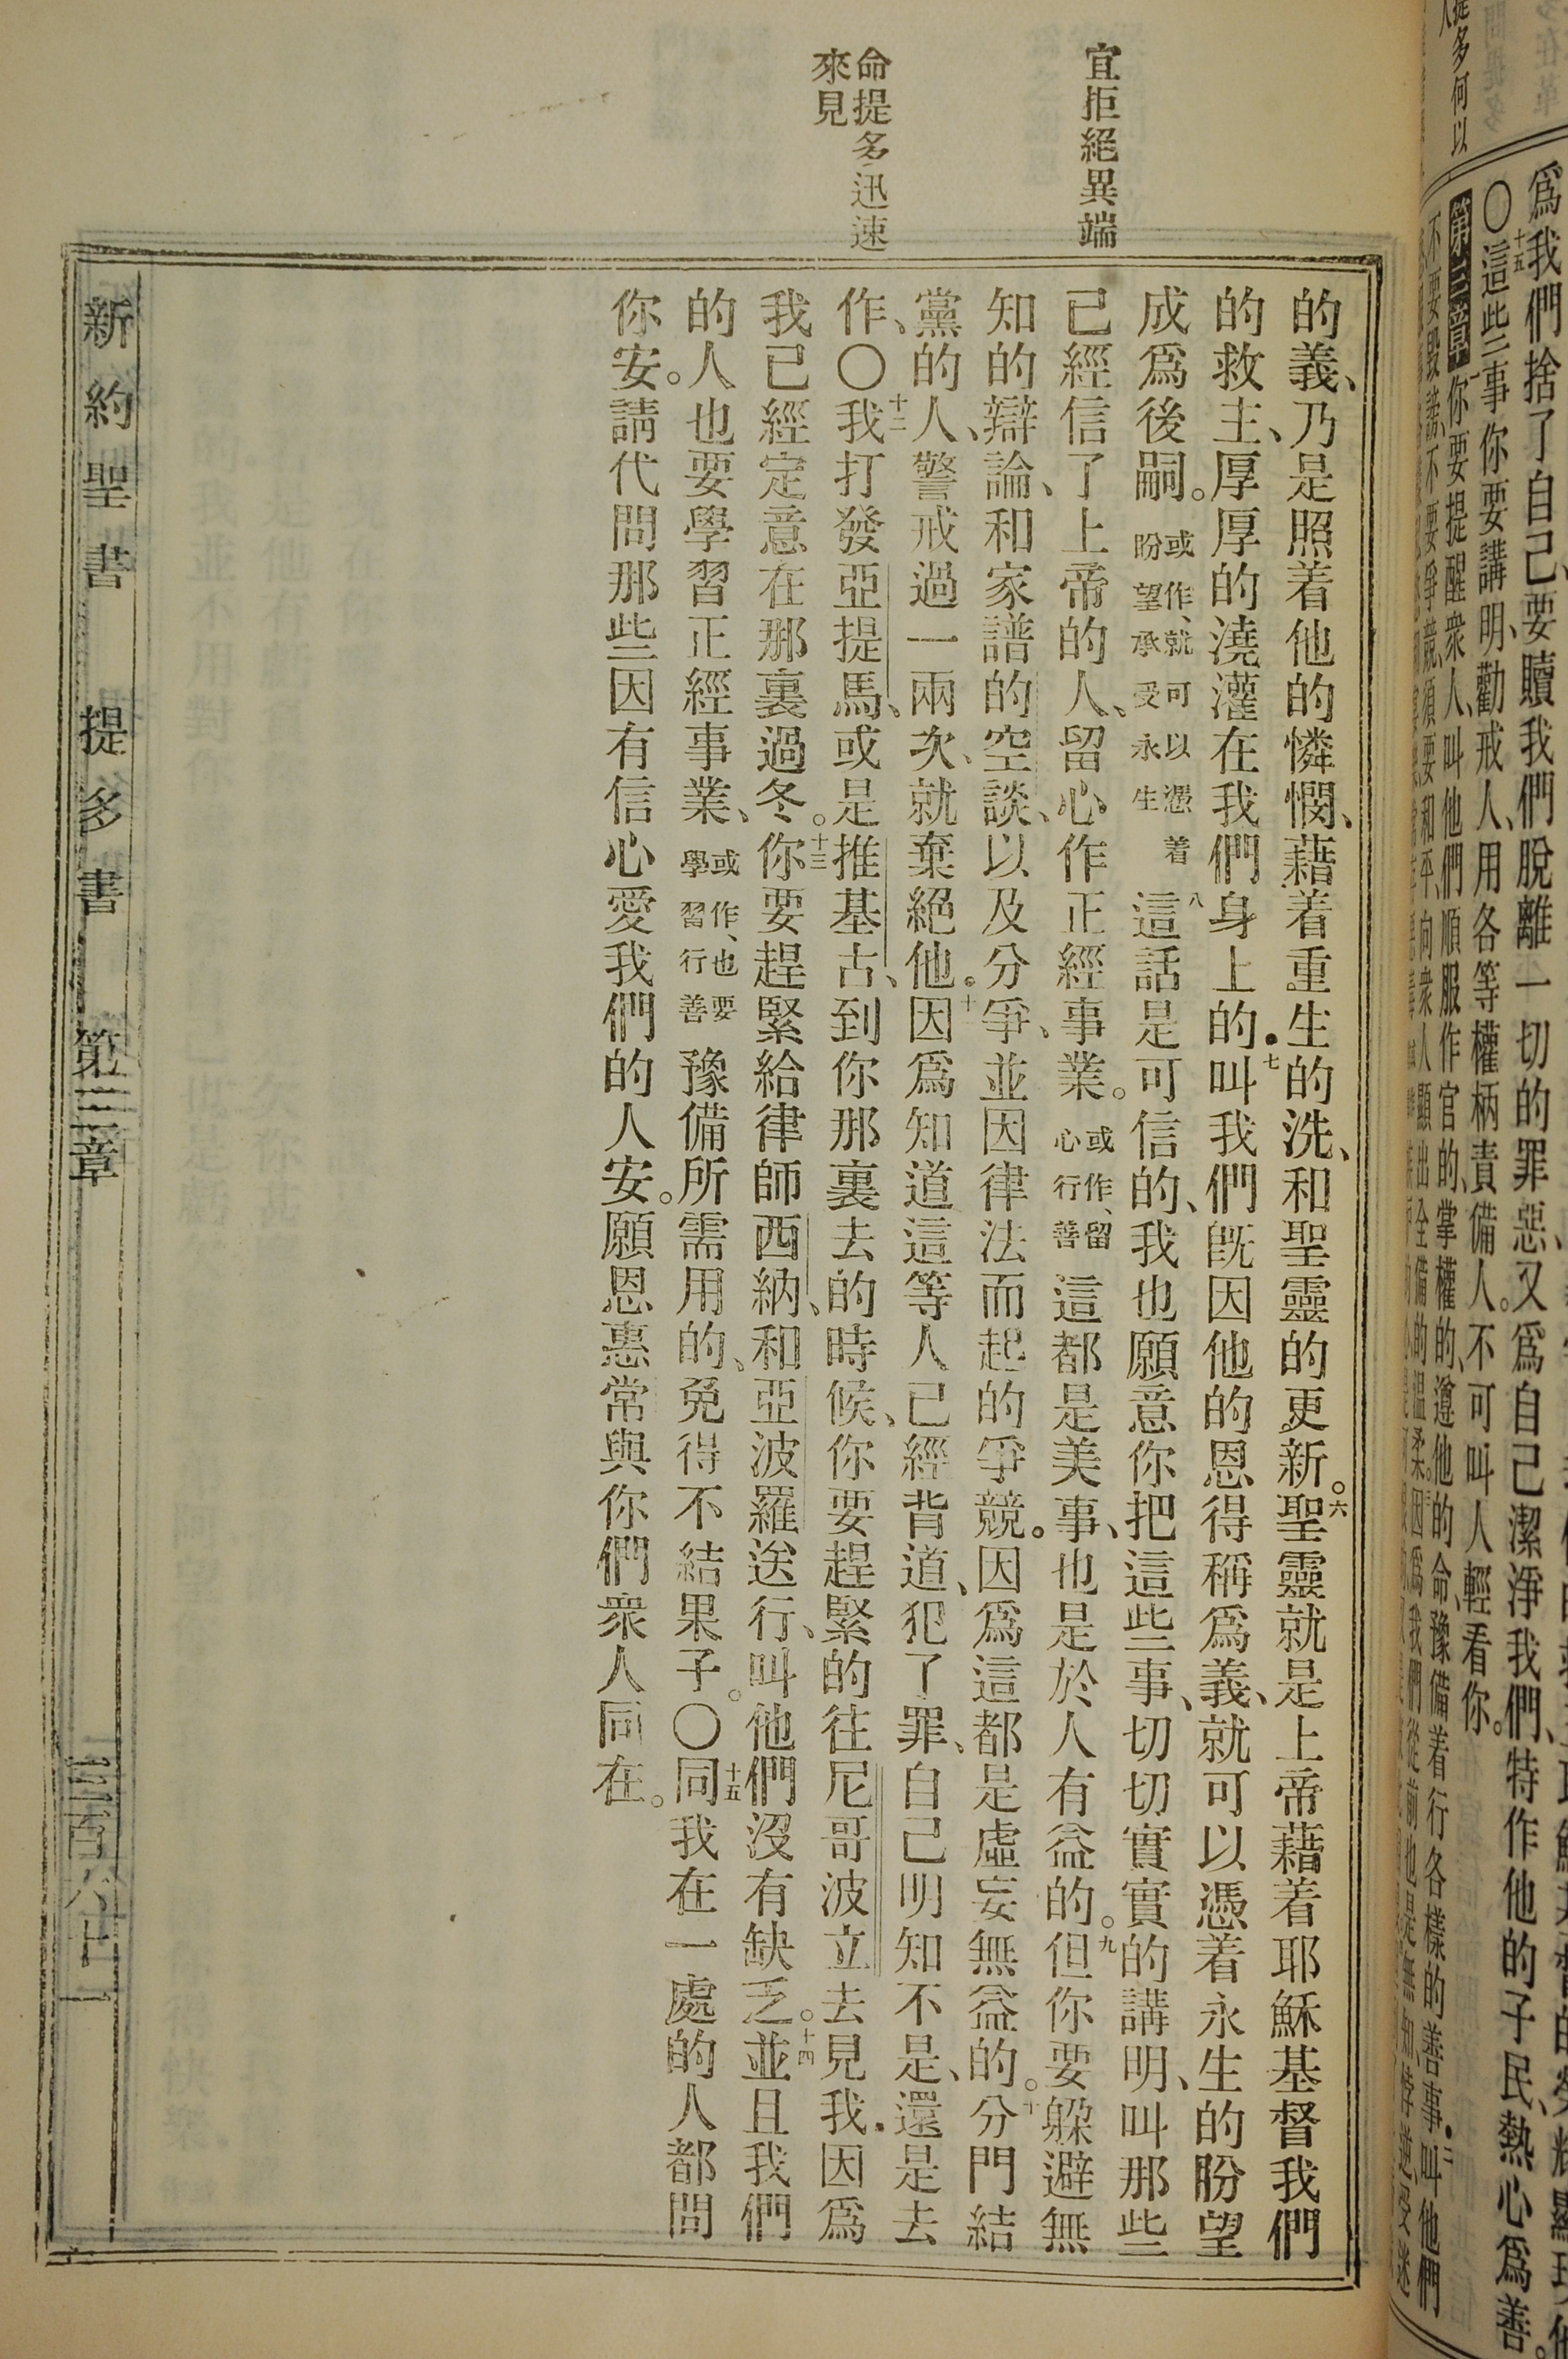 爲我們捨了自己、要贖我們脫離一切的罪惡、又爲自己潔淨我們、特作他的子民、熱心爲善。
〇十五這些事你要講明、勸戒人、用各等權柄責備人。不可叫人輕看你。
第三章一你要提醒衆人、叫他們順服作官的、掌權的、遵他的命、豫備着行各樣的善事．二叫他們
不要毀謗、不要爭競、須要和平、向衆人顯出全備的溫柔。三因爲我們從前也是無知、悖逆、受迷
宜拒絕異端
命提多迅速
來見
的義、乃是照着他的憐憫、藉着重生的洗、和聖靈的更新。六聖靈就是上帝藉着耶穌基督我們
的救主、厚厚的澆灌在我們身上的．七叫我們旣因他的恩得稱爲義、就可以憑着永生的盼望
成爲後嗣。或作、就可以憑着盼望承受永生八這話是可信的、我也願意你把這些事、切切實實的講明、叫那些
已經信了上帝的人、留心作正經事業。或作、留心行善這都是美事、也是於人有益的。九但你要躱避無
知的辯論、和家譜的空談、以及分爭、並因律法而起的爭競．因爲這都是虛妄無益的。十分門結
黨的人、警戒過一兩次、就棄絕他．十一因爲知道這等人已經背道、犯了罪、自己明知不是、還是去
作、〇十二我打發亞提馬、或是推基古、到你那裏去的時候、你要趕緊的往尼哥波立去見我．因爲
我已經定意在那裏過冬。十三你要趕緊給律師西納、和亞波羅送行、叫他們沒有缺乏。十四並且我們
的人也要學習正經事業、或作、也要學習行善豫備所需用的、免得不結果子。〇十五同我在一處的人都問
你安。請代問那些因有信心愛我們的人安。願恩惠常與你們衆人同在。
新約聖書 提多書 第三章 三百六十一